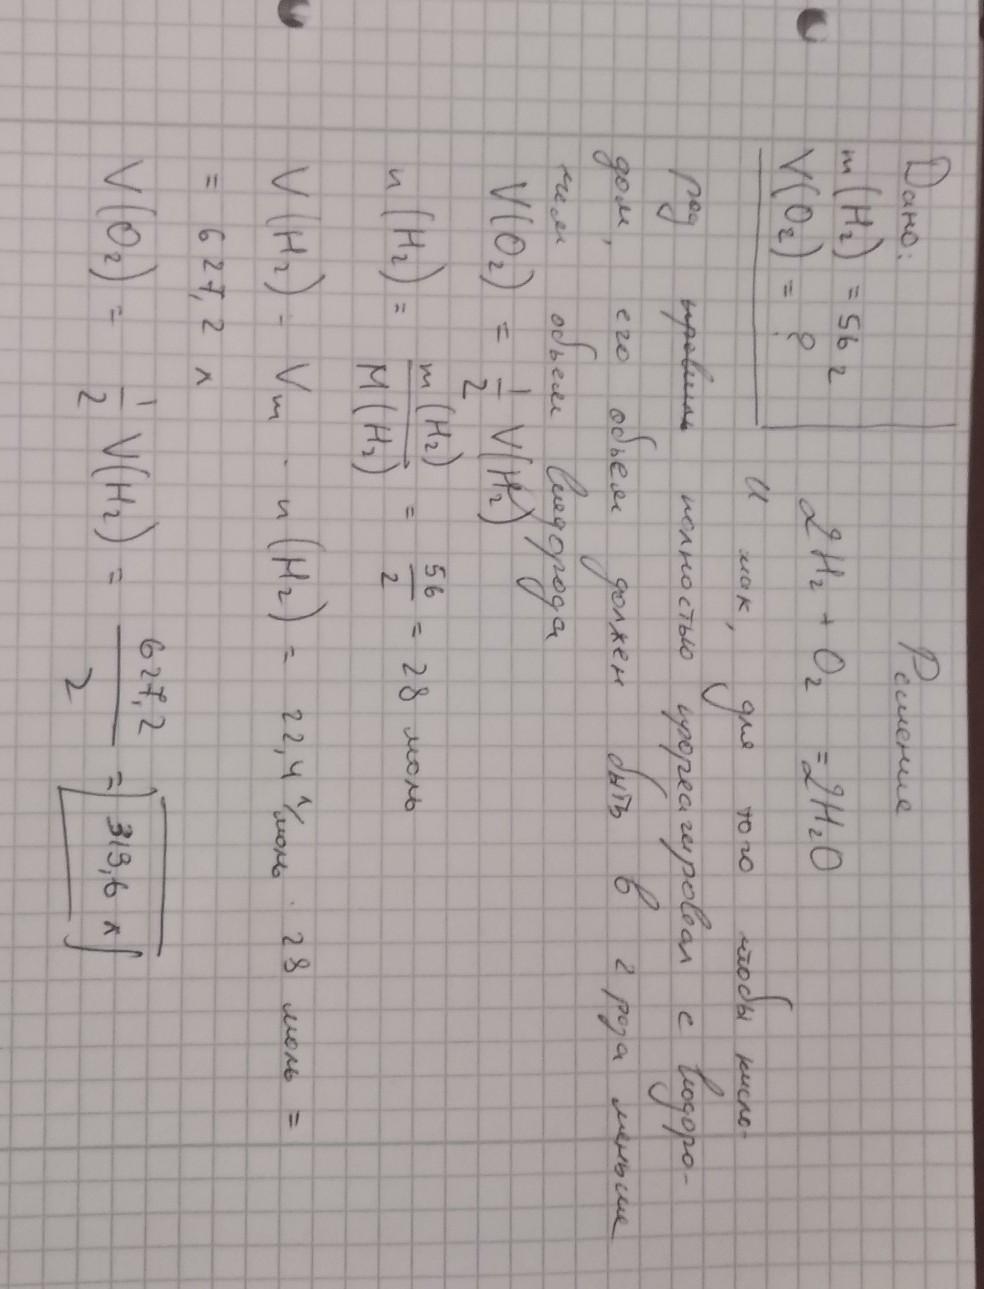 Дано:
m(H₂) = 56 г
V(O₂) = ?
Решение
2H₂ + O₂ = 2H₂O
И так, для того чтобы кисло-
род полностью прореагировал с водоро-
дом, его объем должен быть в 2 раза меньше
чем объем водорода
V(O₂) = 1/2 V(H₂)
n(H₂) = m(H₂)/M(H₂) = 56/2 = 28 моль
V(H₂) - Vm · n(H₂) = 22,4 л/моль · 28 моль =
= 627,2 л
V(O₂) = 1/2 V(H₂) = 627,2/2 = 313,6 л